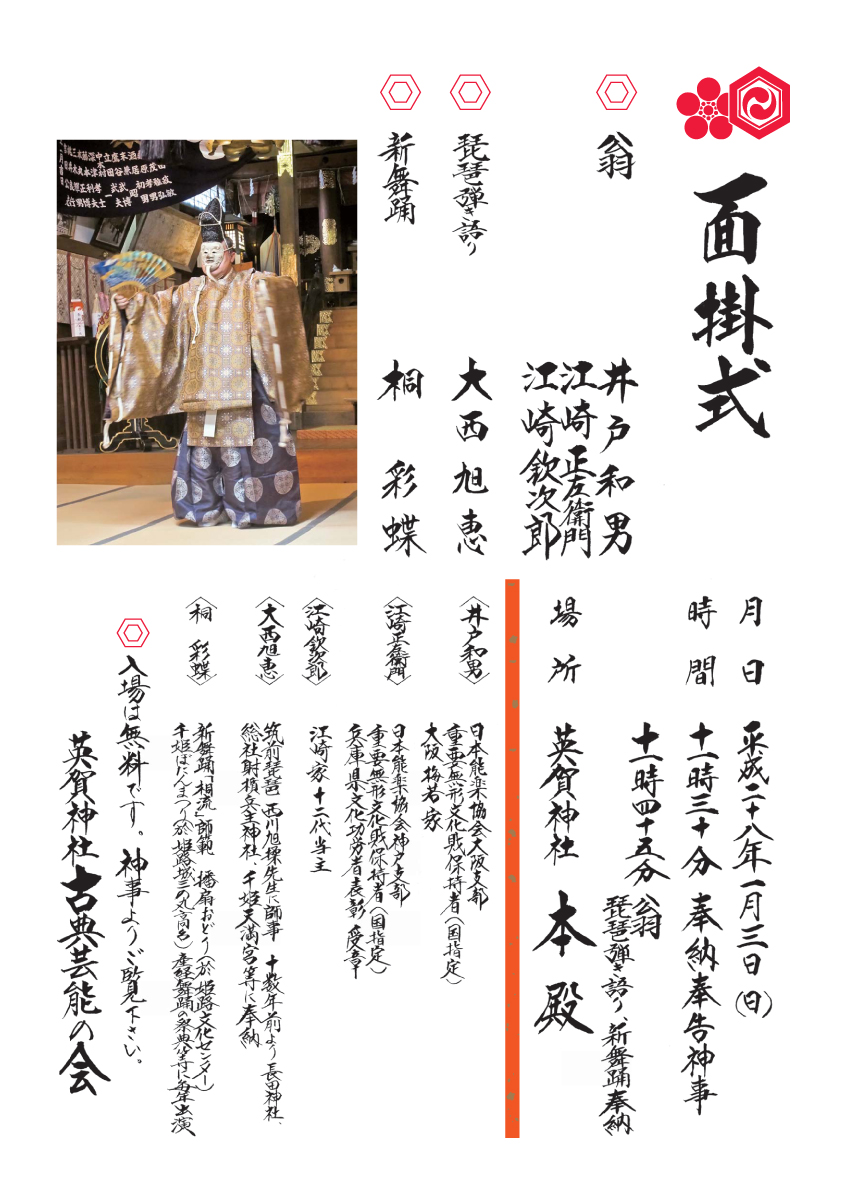 面掛式
翁
井戸和男
江崎正左衛門
江崎欽次郎
琵琶弾き語り
大西旭恵
新舞踊
桐 彩蝶
月日 平成二十八年一月三日(日)
時間 十一時三十分 奉納奉告神事
十一時四十五分 翁
琵琶弾き語り、新舞踊奉納
場所 英賀神社 本殿
〈井戸和男〉 日本能楽協会大阪支部
重要無形文化財保持者(国指定)
大阪梅若家
〈江崎正左衛門〉 日本能楽協会神戸支部
重要無形文化財保持者(国指定)
兵庫県文化功労者表彰受章
〈江崎欽次郎〉 江崎家十二代当主
〈大西旭恵〉 筑前琵琶 西川旭操先生に師事 十数年前より長田神社、
総社射楯兵主神社 千姫天満宮等に奉納
〈桐 彩蝶〉 新舞踊「桐流」師範 播扇おどり(於 姫路文化センター)
千姫ぼたんまつり(於 姫路城三の丸高台) 産経舞踊の祭典等に毎年出演
入場は無料です。神事よりご覧下さい。
英賀神社 古典芸能の会